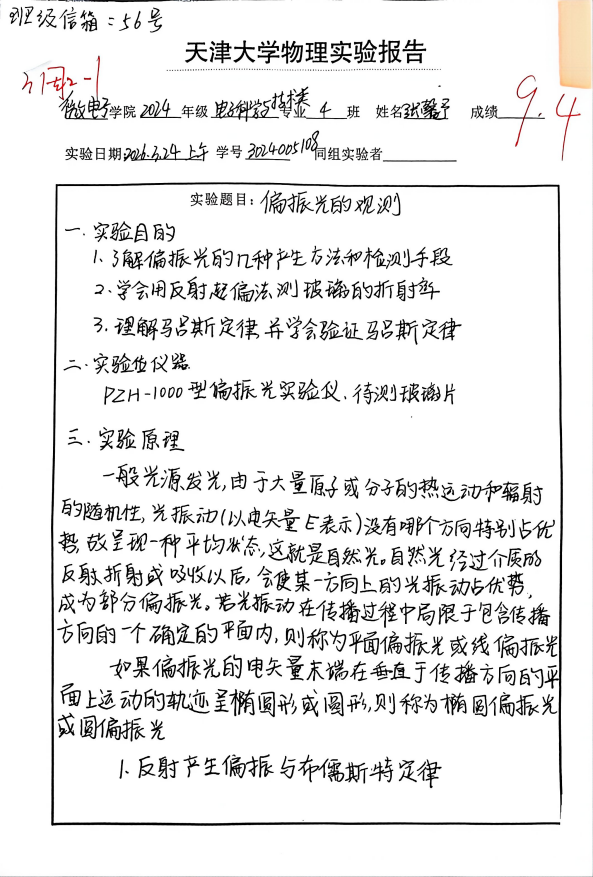 班级信箱：56号
天津大学物理实验报告
微电子学院 2024 年级 电子科学与技术类专业 4 班 姓名 张馨予 成绩 9.4
实验日期 2026.3.24 上午 学号 3024005108 同组实验者
实验题目：偏振光的观测
一. 实验目的
1. 了解偏振光的几种产生方法和检测手段
2. 学会用反射起偏法测玻璃的折射率
3. 理解马吕斯定律，并学会验证马吕斯定律
二. 实验仪器
PZH-1000型偏振光实验仪、待测玻璃片
三. 实验原理
一般光源发光，由于大量原子或分子的热运动和辐射
的随机性，光振动(以电矢量E表示)没有哪个方向特别占优
势，故呈现一种平均状态，这就是自然光。自然光经过介质的
反射、折射或吸收以后，会使某一方向上的光振动占优势，
成为部分偏振光。若光振动在传播过程中局限于包含传播
方向的一个确定的平面内，则称为平面偏振光或线偏振光
如果偏振光的电矢量末端在垂直于传播方向的平
面上运动的轨迹呈椭圆形或圆形，则称为椭圆偏振光
或圆偏振光
1. 反射产生偏振与布儒斯特定律